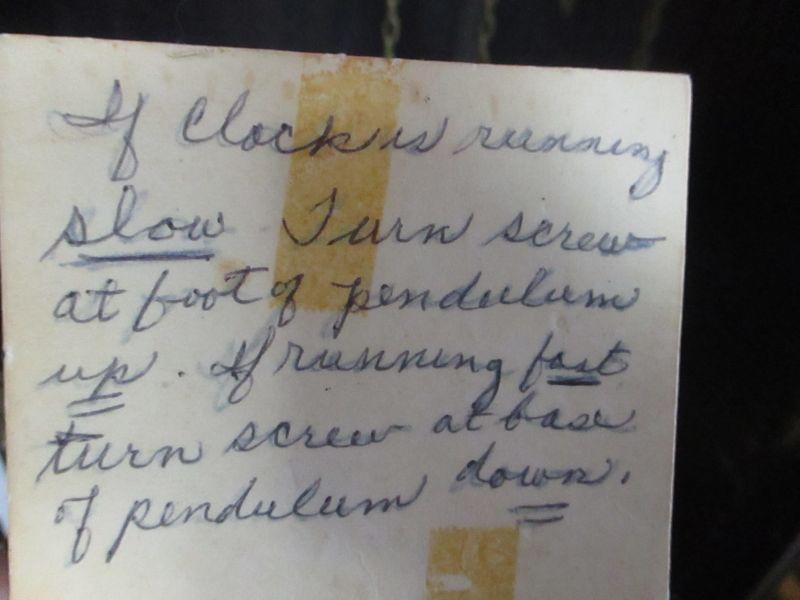 If Clock is running
slow Turn screw
at foot of pendulum
up. If running fast
turn screw at base
of pendulum down.